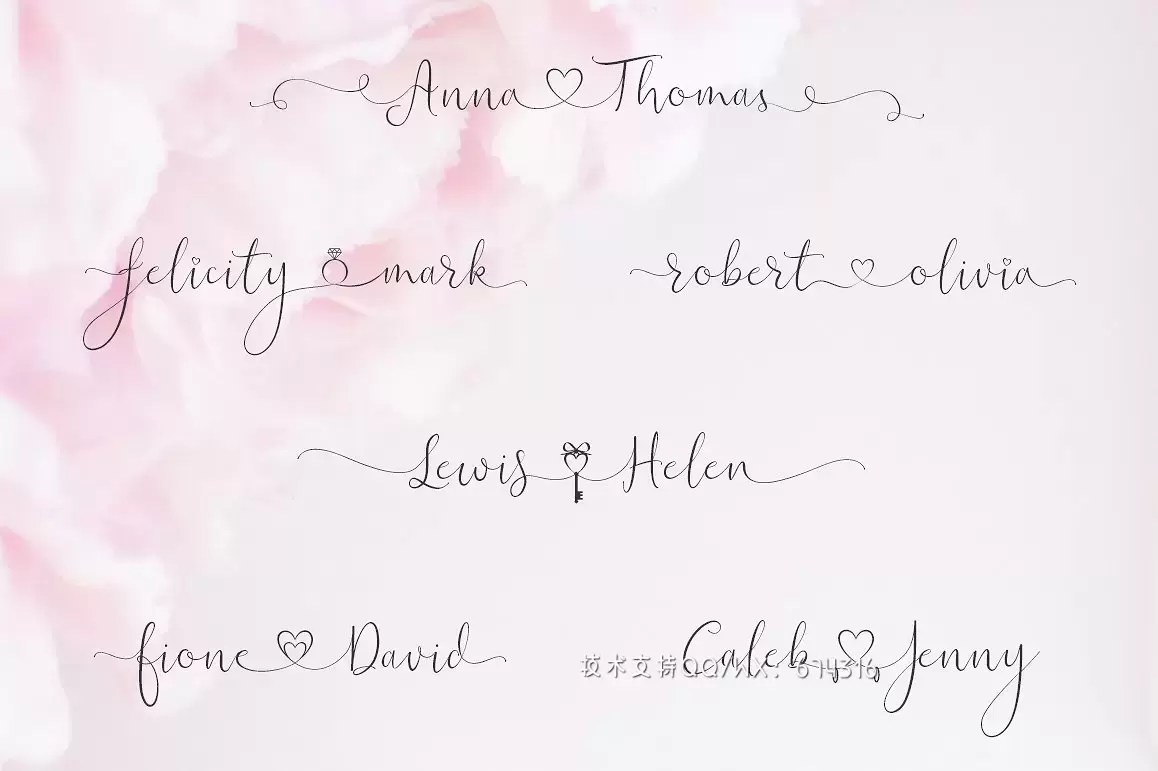 Anna Thomas
felicity mark
robert olivia
Lewis Helen
fione David
Caleb Jenny
技术支持QQ/WX: 674316